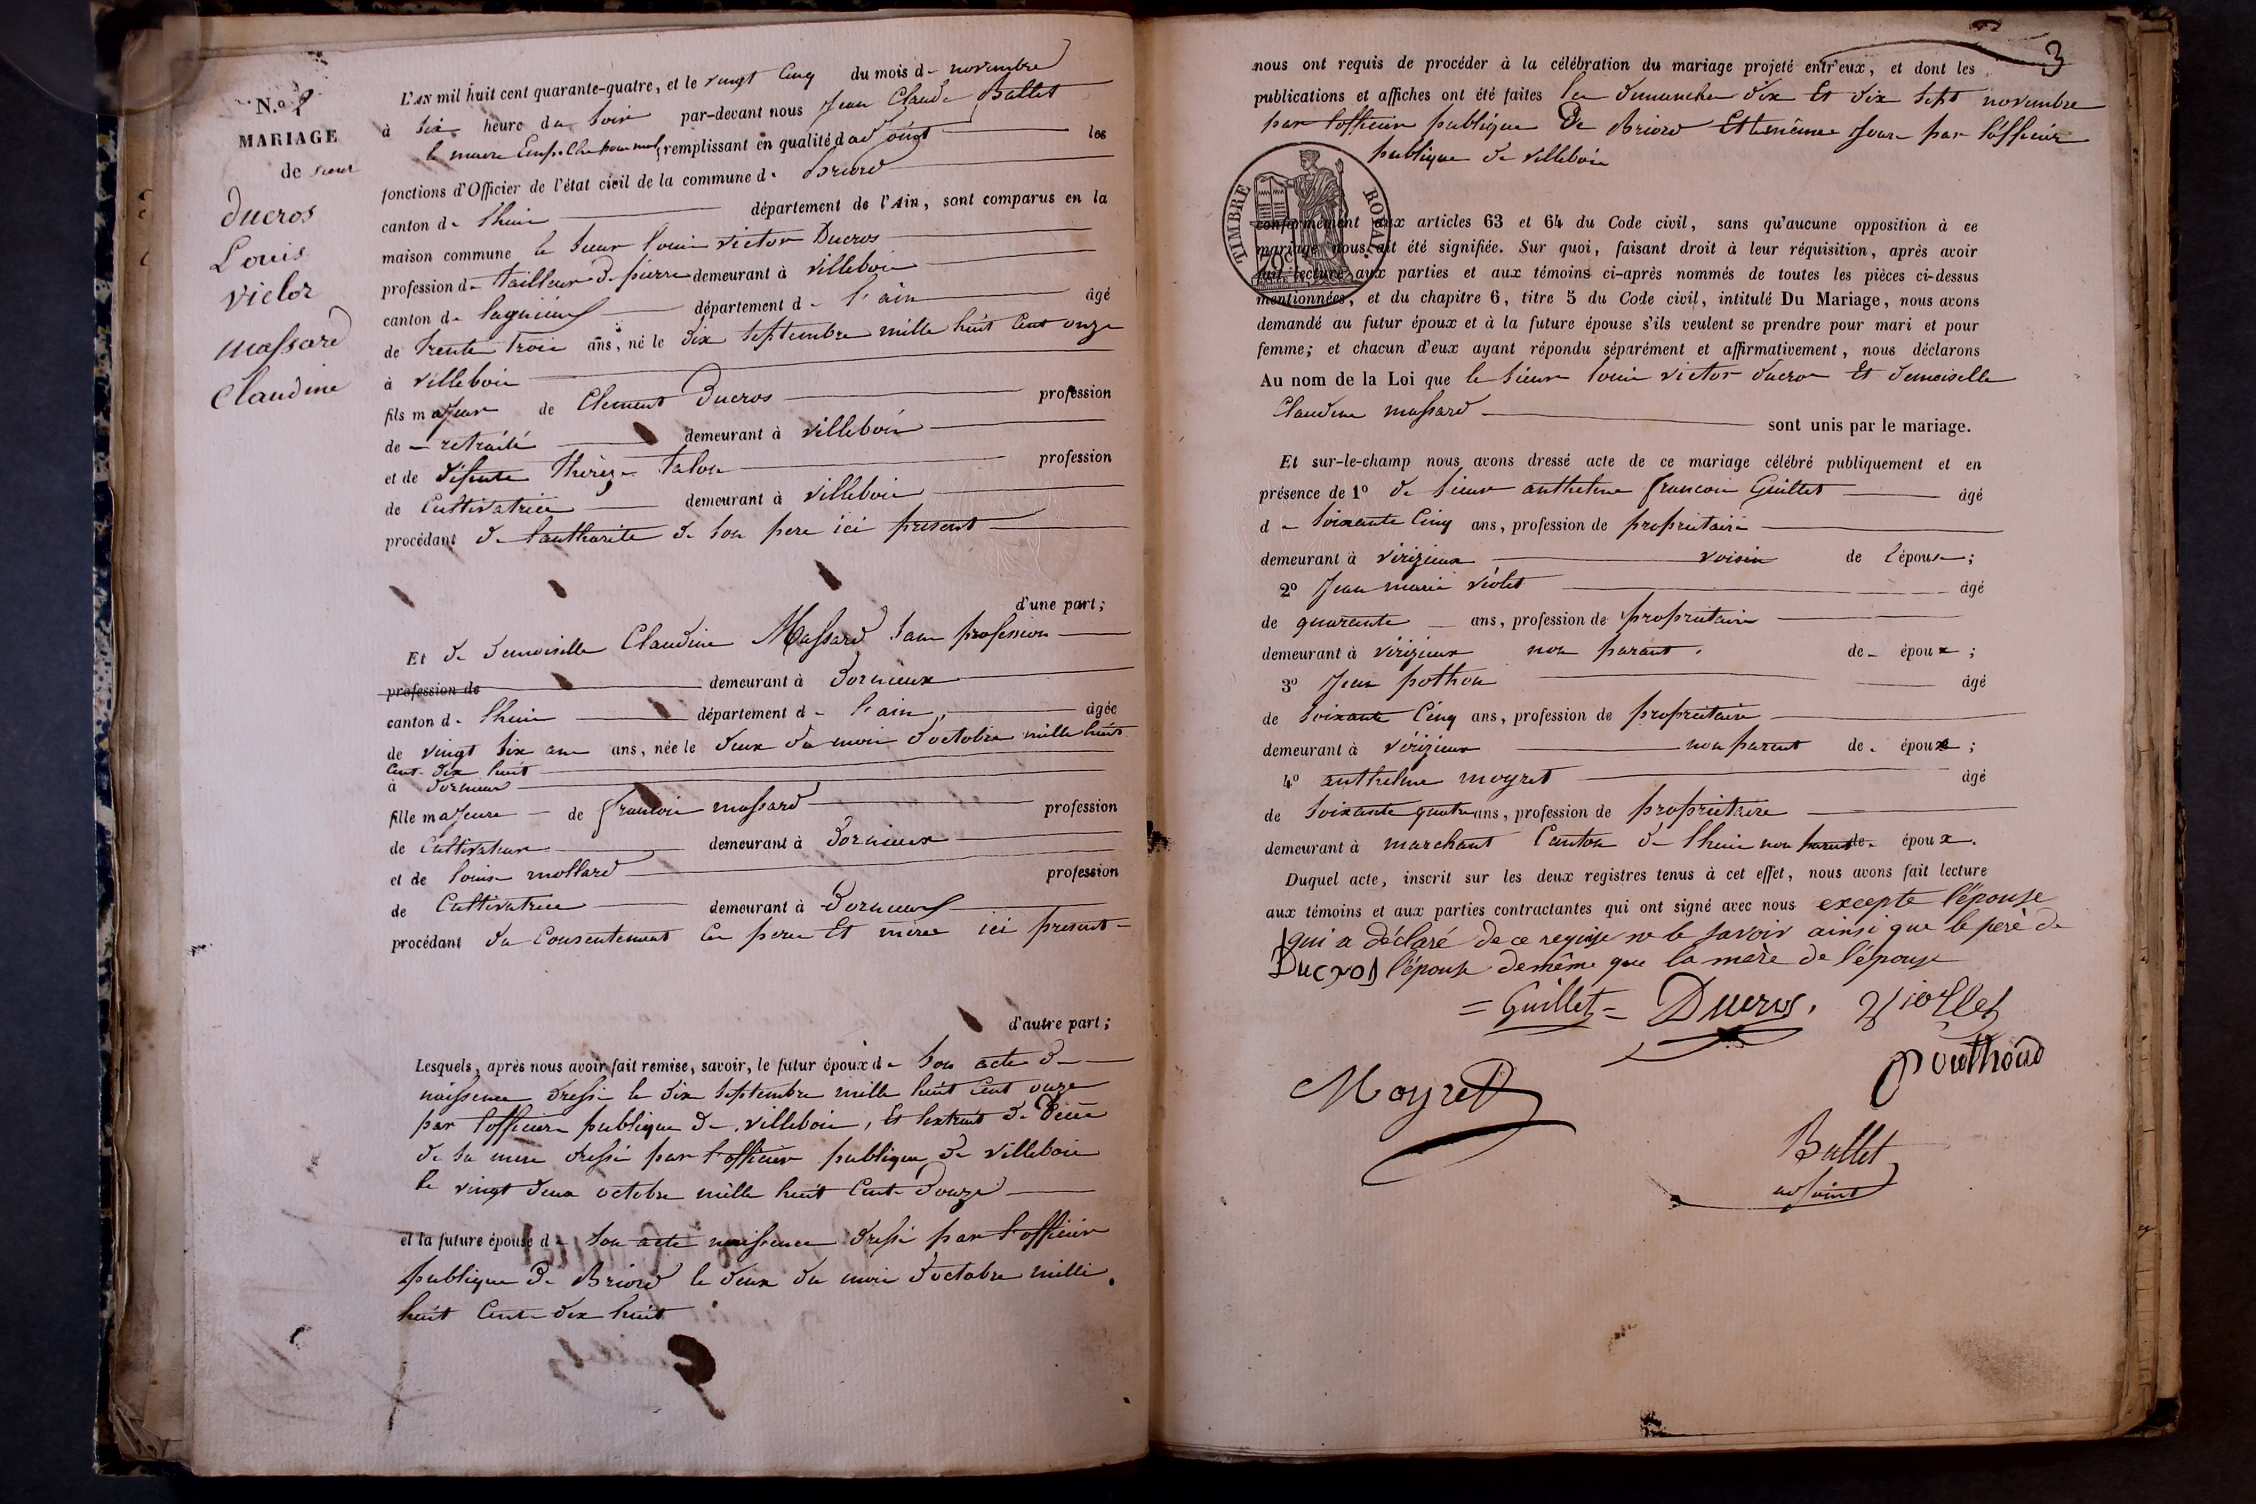 N.o
MARIAGE
de sieur
Ducros
Louis
Victor
Massard
Claudine
L'AN mil huit cent quarante-quatre, et le vingt Cinq du mois de novembre
à Six heure du Soir par-devant nous Jean Claude Ballet
le maire Empeche remplissant en qualité d'adjoint les
fonctions d'Officier de l'état civil de la commune de Briord
canton de Lhuis département de l'Ain, sont comparus en la
maison commune le Sieur Louis Victor Ducros
profession de tailleur de pierre demeurant à Villebois
canton de Lagnieux département de l'ain âgé
de trente trois ans, né le dix Septembre mille huit Cent onze
à Villebois
fils majeur de Clement Ducros profession
de retraité demeurant à Villebois
et de défunte Thérèze Talon profession
de Cultivatrice demeurant à Villebois
procédant de Lauthorite de Son pere ici present
d'une part;
Et de demoiselle Claudine Massard Sans profession
profession de demeurant à Dornieux
canton de Lhuis département de l'ain, âgée
de vingt Six ans ans, née le deux du mois d'octobre mille huit
Cent dix huit
à Dornieux
fille majeure de francois massard profession
de Cultivateur demeurant à Dornieux
et de Louise mollard profession
de Cultivatrice demeurant à Dornieux
procédant du Consentement Ces peres Et mere ici present
d'autre part;
Lesquels, après nous avoir fait remise, savoir, le futur époux de Son acte de
naissence dressé le dix Septembre mille huit Cent onze
par l'officier publique de Villebois, Et Lextrait de Décès
de Sa mere dressé par l'officier publique de Villebois
le vingt deux octobre mille huit Cent douze
et la future épouse de Son acte naissence dressé par l'officier
publique de Briord le deux du mois d'octobre mille
huit Cent dix huit
3
nous ont requis de procéder à la célébration du mariage projeté entr'eux, et dont les
publications et affiches ont été faites les dimanches dix Et dix Sept novembre
par l'officier publique De Briord Et le même Jour par l'officier
publique de Villebois
TIMBRE ROYAL
70c
conformément aux articles 63 et 64 du Code civil, sans qu'aucune opposition à ce
mariage nous ait été signifiée. Sur quoi, faisant droit à leur réquisition, après avoir
fait lecture aux parties et aux témoins ci-après nommés de toutes les pièces ci-dessus
mentionnées, et du chapitre 6, titre 5 du Code civil, intitulé Du Mariage, nous avons
demandé au futur époux et à la future épouse s'ils veulent se prendre pour mari et pour
femme; et chacun d'eux ayant répondu séparément et affirmativement, nous déclarons
Au nom de la Loi que le Sieur Louis Victor ducros Et demoiselle
Claudine massard sont unis par le mariage.
Et sur-le-champ nous avons dressé acte de ce mariage célébré publiquement et en
présence de 1o de Sieur anthelme francois Guillet âgé
de Soixante Cinq ans, profession de propriétaire
demeurant à Vérizieux voisin de l'épouse;
2o Jean marie Violet âgé
de quarante ans, profession de propriétaire
demeurant à Vérizieux non parant de époux;
3o Jean pothou âgé
de Soixante Cinq ans, profession de propriétaire
demeurant à Vérizieux non parent de époux;
4o anthelme moyret âgé
de Soixante quatre ans, profession de propriétaire
demeurant à marchant Canton de Lhuis non parent de époux.
Duquel acte, inscrit sur les deux registres tenus à cet effet, nous avons fait lecture
aux témoins et aux parties contractantes qui ont signé avec nous excepte l'épouse
qui a déclaré de ce requise ne le savoir ainsi que le père de
Ducros l'épouse de même que la mère de l'épouse
= Guillet = Ducros. Viollet
Moyret Pouthoud
Ballet
adjoint